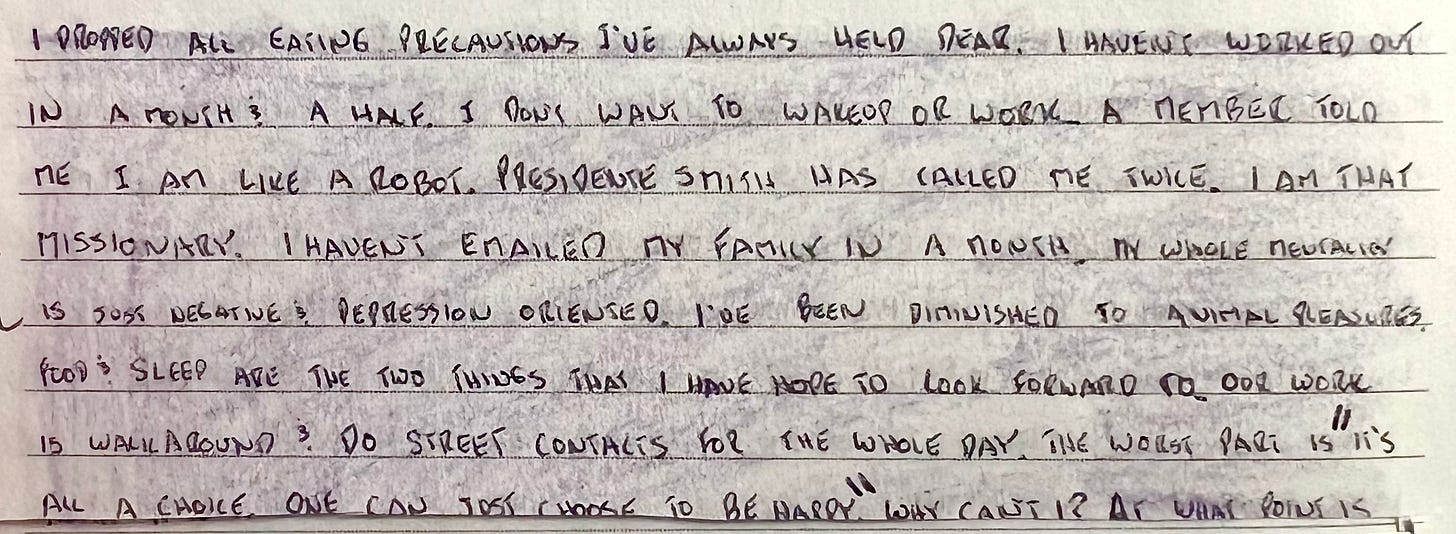 I DROPPED ALL EATING PRECAUTIONS I'VE ALWAYS HELD DEAR. I HAVEN'T WORKED OUT
IN A MONTH & A HALF. I DON'T WANT TO WAKEUP OR WORK. A MEMBER TOLD
ME I AM LIKE A ROBOT. PRESIDENTE SMITH HAS CALLED ME TWICE. I AM THAT
MISSIONARY. I HAVEN'T EMAILED MY FAMILY IN A MONTH. MY WHOLE MENTALITY
IS JUST NEGATIVE & DEPRESSION ORIENTED. I'VE BEEN DIMINISHED TO ANIMAL PLEASURES.
FOOD & SLEEP ARE THE TWO THINGS THAT I HAVE HOPE TO LOOK FORWARD TO. OUR WORK
IS WALK AROUND & DO STREET CONTACTS FOR THE WHOLE DAY. THE WORST PART IS "IT'S
ALL A CHOICE. ONE CAN JUST CHOOSE TO BE HAPPY". WHY CAN'T I? AT WHAT POINT IS